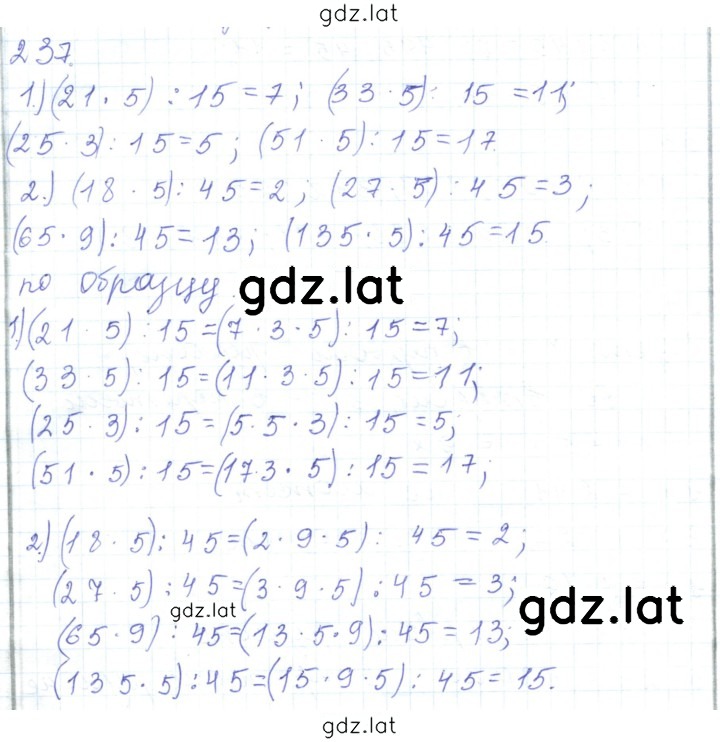 gdz.lat
237.
1.) (21 · 5) : 15 = 7; (33 · 5) : 15 = 11;
(25 · 3) : 15 = 5; (51 · 5) : 15 = 17.
2.) (18 · 5) : 45 = 2; (27 · 5) : 45 = 3;
(65 · 9) : 45 = 13; (135 · 5) : 45 = 15.
по образцу
gdz.lat
1) (21 · 5) : 15 = (7 · 3 · 5) : 15 = 7;
(33 · 5) : 15 = (11 · 3 · 5) : 15 = 11;
(25 · 3) : 15 = (5 · 5 · 3) : 15 = 5;
(51 · 5) : 15 = (17 · 3 · 5) : 15 = 17;
2.) (18 · 5) : 45 = (2 · 9 · 5) : 45 = 2;
(27 · 5) : 45 = (3 · 9 · 5) : 45 = 3;
gdz.lat
gdz.lat
(65 · 9) : 45 = (13 · 5 · 9) : 45 = 13;
(135 · 5) : 45 = (15 · 9 · 5) : 45 = 15.
gdz.lat